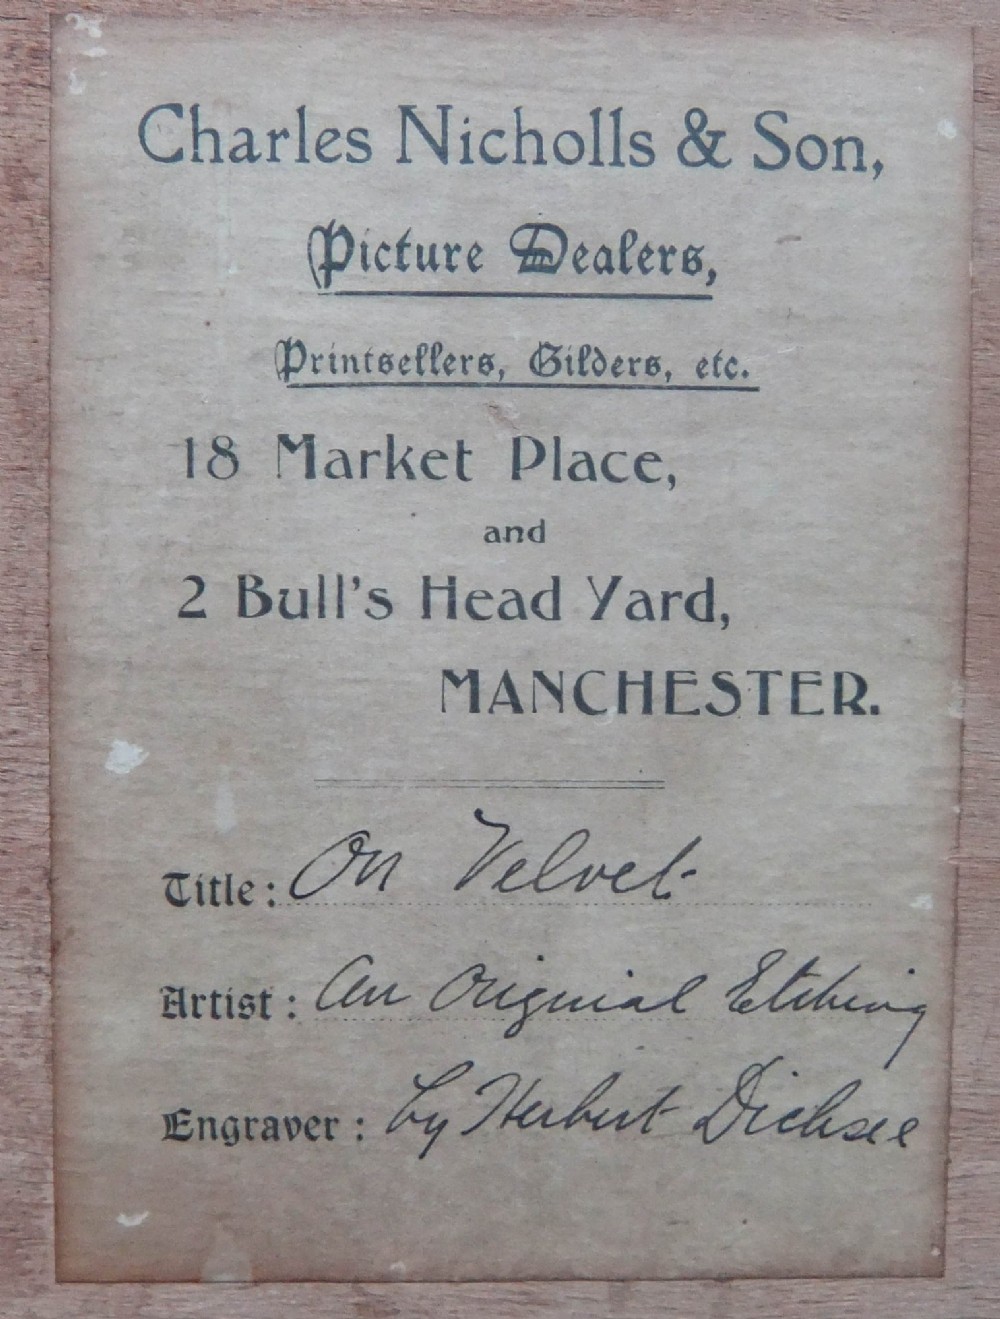 Charles Nicholls & Son,
Picture Dealers,
Printsellers, Gilders, etc.
18 Market Place,
and
2 Bull's Head Yard,
MANCHESTER.
Title: On Velvet
Artist: An Original Etching
Engraver: by Herbert Dicksee